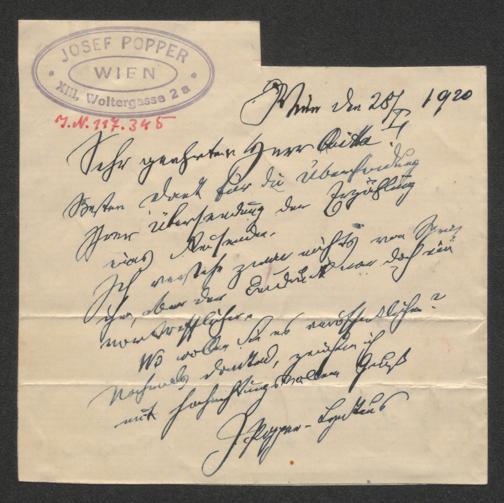 JOSEF POPPER
WIEN
XIII, Woltergasse 2a
I.N. 117.345
Wien den 28/I 1920
Sehr geehrter Herr
Besten Dank für die Übersendung
Ihrer Übersendung der Erzählung
eines
Ich verstehe zwar nichts von
aber der Eindruck war doch ein
vortrefflicher.
Wo wollen Sie es veröffentlichen?
Nochmals dankend, zeichne ich
mit hochachtungsvollem Gruß
J. Popper-Lynkeus